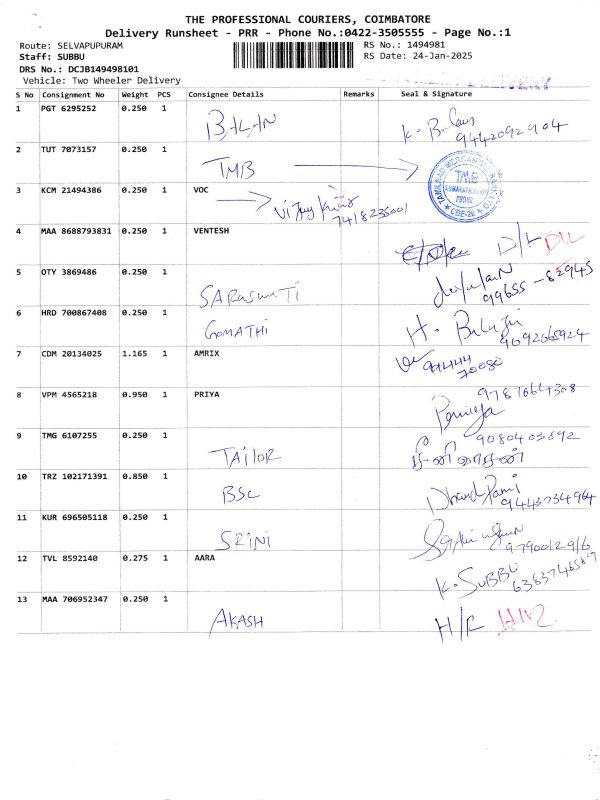 THE PROFESSIONAL COURIERS, COIMBATORE
Delivery Runsheet - PRR - Phone No.:0422-3505555 - Page No.:1
Route: SELVAPUPURAM RS No.: 1494981
Staff: SUBBU RS Date: 24-Jan-2025
DRS No.: DCJB149498101
Vehicle: Two Wheeler Delivery
S No Consignment No Weight PCS Consignee Details Remarks Seal & Signature
1 PGT 6295252 0.250 1 BALAN
9442092904
2 TUT 7073157 0.250 1 TMB
TAMILNAD MERCANTILE BANK LTD
TMB
CBE-26
3 KCM 21494386 0.250 1 VOC
7418235001
4 MAA 8688793831 0.250 1 VENTESH D/L
5 OTY 3869486 0.250 1 SARASWATI
99655-82945
6 HRD 700867408 0.250 1 GOMATHI H. Balaji
9092665924
7 CDM 20134025 1.165 1 AMRIX
94444 70080
8 VPM 4565218 0.950 1 PRIYA 9787664308
9 TMG 6107255 0.250 1 TAILOR 9080403692
10 TRZ 102171391 0.850 1 BSC
9443734964
11 KUR 696505118 0.250 1 SRINI
12 TVL 8592140 0.275 1 AARA K. SUBBU
13 MAA 706952347 0.250 1 AKASH H/R